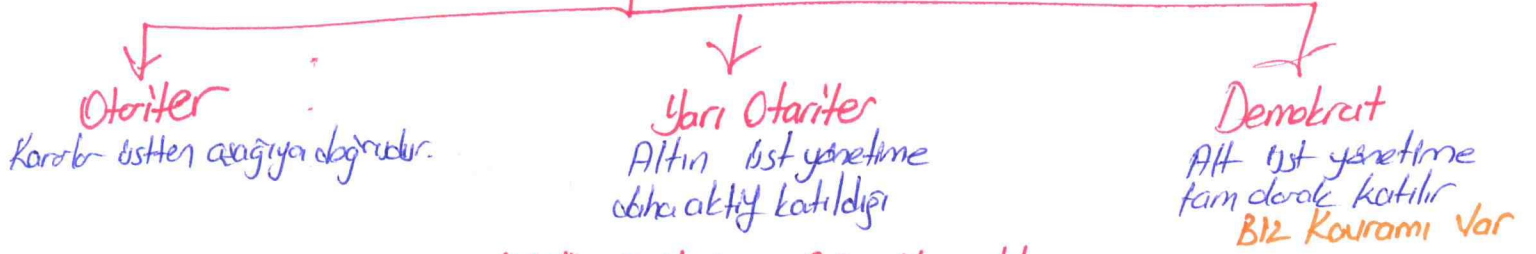 Otoriter
Kararlar üstten aşağıya doğrudur.
Yarı Otariter
Altın üst yönetime
daha aktif katıldığı
Demokrat
Alt üst yönetime
tam olarak katılır
BİZ Kavramı Var